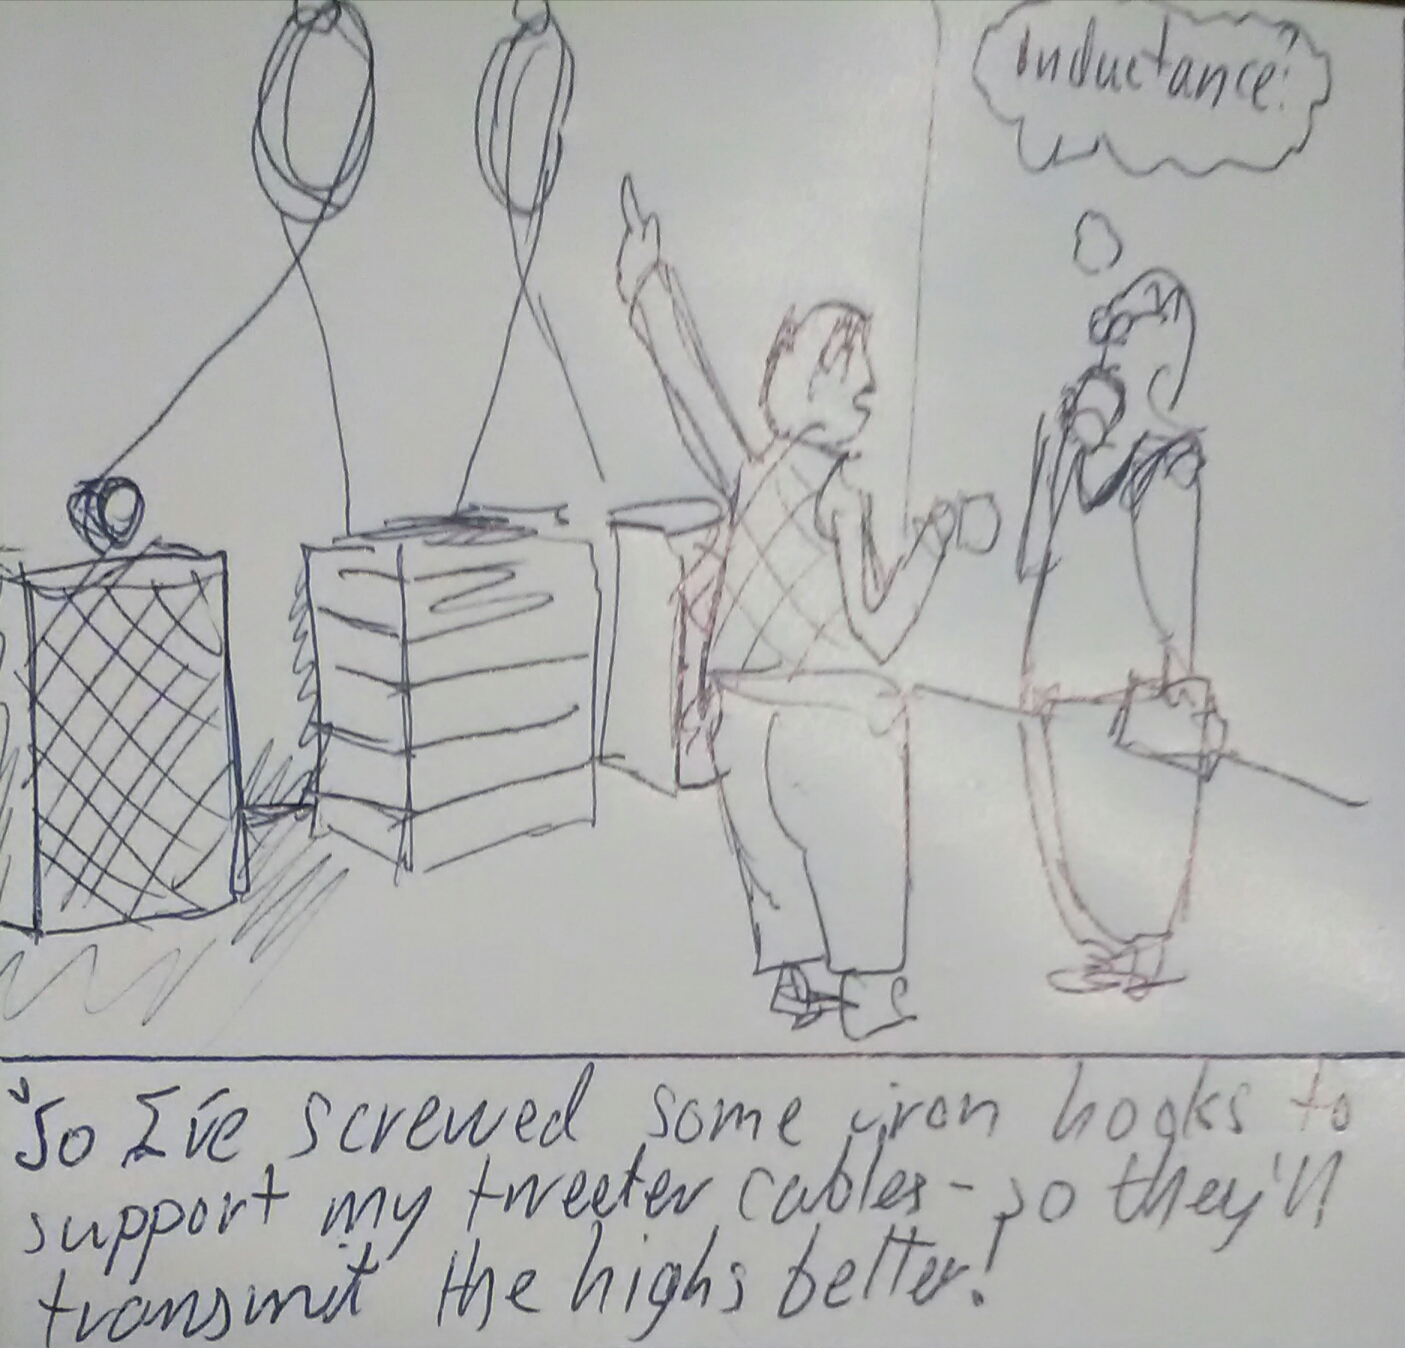 inductance!
"So I've screwed some iron hooks to
support my tweeter cables - so they'll
transmit the highs better!